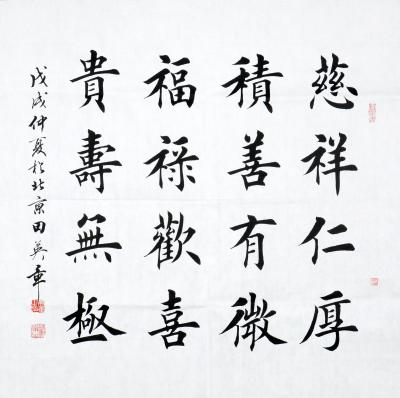 慈祥仁厚
積善有微
福祿歡喜
貴壽無極
戊戌仲夏於北京田英章